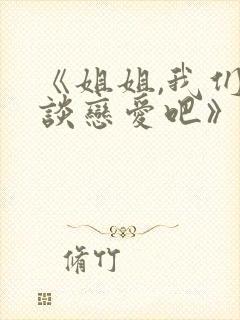 《姐姐,我们
談戀愛吧》
脩竹